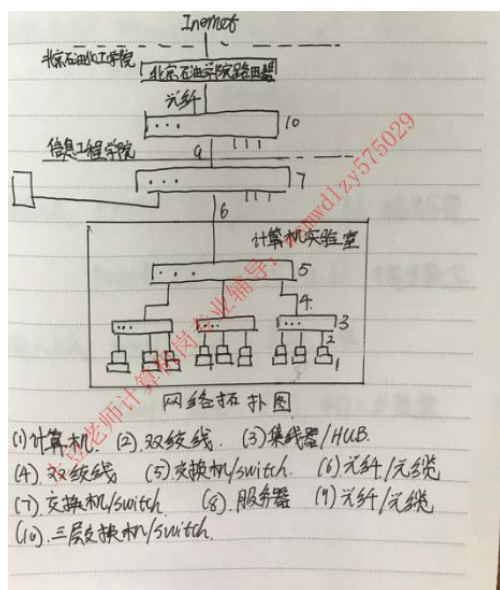 Inernet
北京石油化工学院
北京石油学院路由器
光纤
10
9
信息工程学院
7
6
计算机实验室
5
4
3
2
1
网络拓扑图
(1)计算机. (2).双绞线. (3)集线器/HUB.
(4).双绞线 (5).交换机/switch. (6)光纤/光缆
(7).交换机/switch. (8).服务器 (9)光纤/光缆
(10).三层交换机/switch.